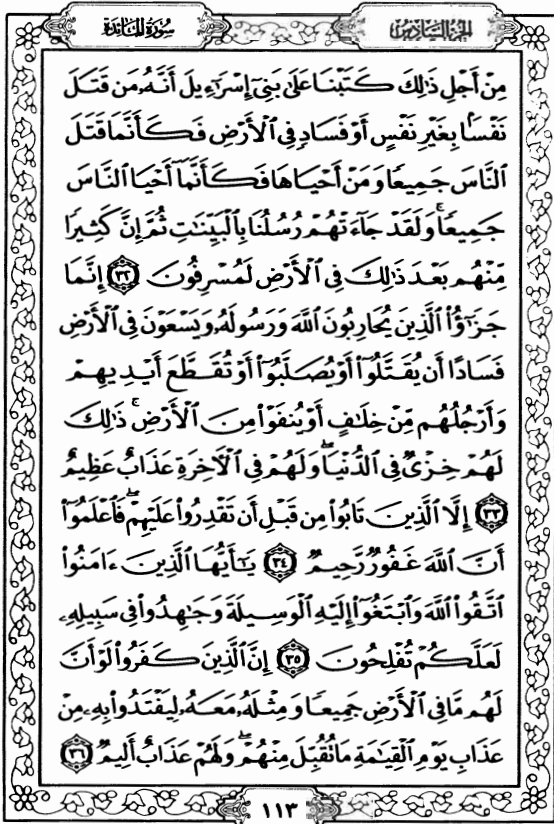 سُورَةُ المَائِدَةِ
الجُزْءُ السَّادِسُ
مِنْ أَجْلِ ذَٰلِكَ كَتَبْنَا عَلَىٰ بَنِىٓ إِسْرَٰٓءِيلَ أَنَّهُۥ مَن قَتَلَ
نَفْسًۢا بِغَيْرِ نَفْسٍ أَوْ فَسَادٍ فِى ٱلْأَرْضِ فَكَأَنَّمَا قَتَلَ
ٱلنَّاسَ جَمِيعًا وَمَنْ أَحْيَاهَا فَكَأَنَّمَآ أَحْيَا ٱلنَّاسَ
جَمِيعًا ۚ وَلَقَدْ جَآءَتْهُمْ رُسُلُنَا بِٱلْبَيِّنَٰتِ ثُمَّ إِنَّ كَثِيرًا
مِّنْهُم بَعْدَ ذَٰلِكَ فِى ٱلْأَرْضِ لَمُسْرِفُونَ ٣٢ إِنَّمَا
جَزَٰٓؤُا۟ ٱلَّذِينَ يُحَارِبُونَ ٱللَّهَ وَرَسُولَهُۥ وَيَسْعَوْنَ فِى ٱلْأَرْضِ
فَسَادًا أَن يُقَتَّلُوٓا۟ أَوْ يُصَلَّبُوٓا۟ أَوْ تُقَطَّعَ أَيْدِيهِمْ
وَأَرْجُلُهُم مِّنْ خِلَٰفٍ أَوْ يُنفَوْا۟ مِنَ ٱلْأَرْضِ ۚ ذَٰلِكَ
لَهُمْ خِزْىٌ فِى ٱلدُّنْيَا ۖ وَلَهُمْ فِى ٱلْءَاخِرَةِ عَذَابٌ عَظِيمٌ
٣٣ إِلَّا ٱلَّذِينَ تَابُوا۟ مِن قَبْلِ أَن تَقْدِرُوا۟ عَلَيْهِمْ ۖ فَٱعْلَمُوٓا۟
أَنَّ ٱللَّهَ غَفُورٌ رَّحِيمٌ ٣٤ يَٰٓأَيُّهَا ٱلَّذِينَ ءَامَنُوا۟
ٱتَّقُوا۟ ٱللَّهَ وَٱبْتَغُوٓا۟ إِلَيْهِ ٱلْوَسِيلَةَ وَجَٰهِدُوا۟ فِى سَبِيلِهِۦ
لَعَلَّكُمْ تُفْلِحُونَ ٣٥ إِنَّ ٱلَّذِينَ كَفَرُوا۟ لَوْ أَنَّ
لَهُم مَّا فِى ٱلْأَرْضِ جَمِيعًا وَمِثْلَهُۥ مَعَهُۥ لِيَفْتَدُوا۟ بِهِۦ مِنْ
عَذَابِ يَوْمِ ٱلْقِيَٰمَةِ مَا تُقُبِّلَ مِنْهُمْ ۖ وَلَهُمْ عَذَابٌ أَلِيمٌ ٣٦
١١٣